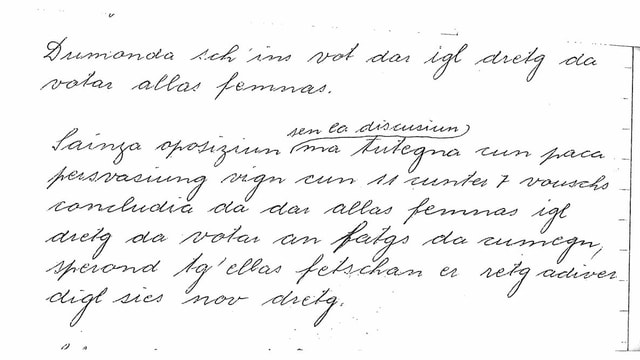 Dumonda sch'ins vot dar igl dretg da
votar allas femnas.
sen la discusiun
Sainza oposiziun ma tutegna cun paca
persvasiung vign cun 11 cunter 7 vouschs
concludia da dar allas femnas igl
dretg da votar an fatgs da cumegn,
sperond tg'ellas fetschan er retg adiver
digl sies nov dretg.